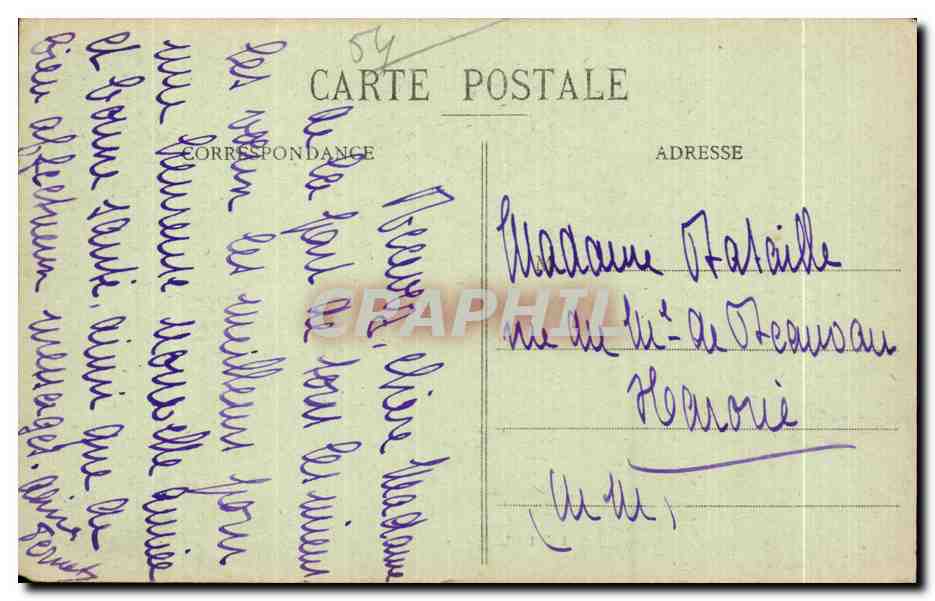 54
CARTE POSTALE
CORRESPONDANCE
ADRESSE
Recevez, chère Madame
de la part de tous les miens
les vœux les meilleurs pour
une heureuse nouvelle année
et bonne santé, ainsi que de
bien affectueux messages.
Madame Bataille
rue du Mal de Beauvau
Haroué
(M M)
CPAPHIL